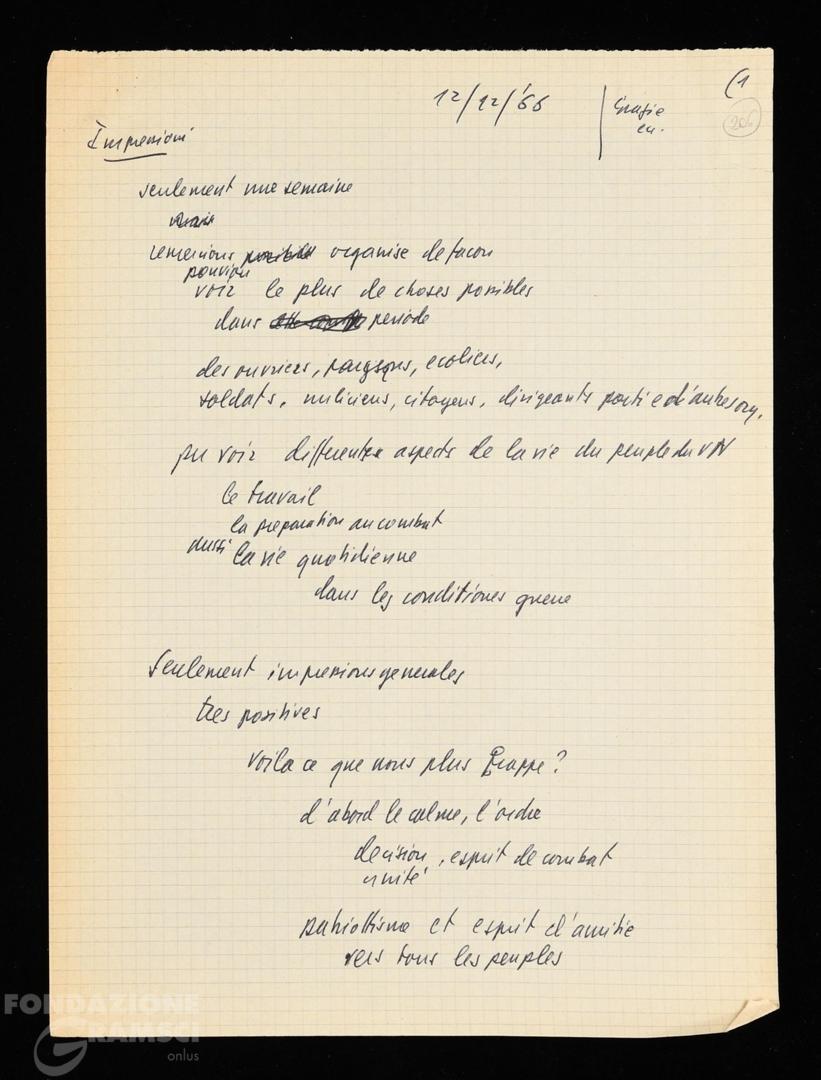 (1
12/12/'66
Grazie
206
Impressioni
seulement une semaine
mais
remercions organisé de facon
pouvion
voir le plus de choses possibles
dans periode
des ouvriers, paysans, ecoliers,
soldats, miliciens, citoyens, dirigeants parti e d'autres org.
pu voir differentes aspects de la vie du peuple du VN
le travail
la preparation au combat
aussi la vie quotidienne
dans les conditiones guerre
Seulement impressions generales
tres positives
voila ce que nous plus frappe?
d'abord le calme, l'ordre
decision, esprit de combat
unité
patriottisme et esprit d'amitie
vers tous les peuples
FONDAZIONE
GRAMSCI
onlus